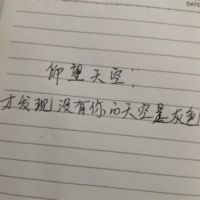 DATE
仰望天空；
才发现没有你的天空是灰色